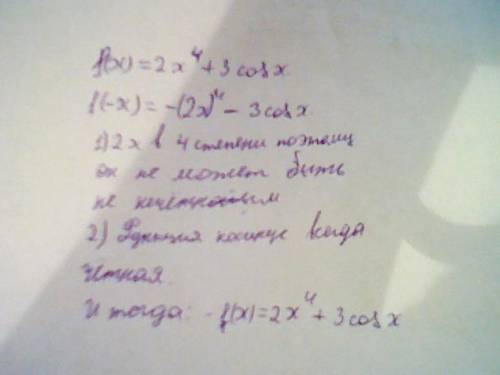 f(x) = 2x⁴ + 3 cos x
f(-x) = -(2x)⁴ - 3 cos x
1) 2x в 4 степени поэтому
он не может быть
не
2) Функция косинус всегда
чётная.
И тогда: -f(x) = 2x⁴ + 3 cos x